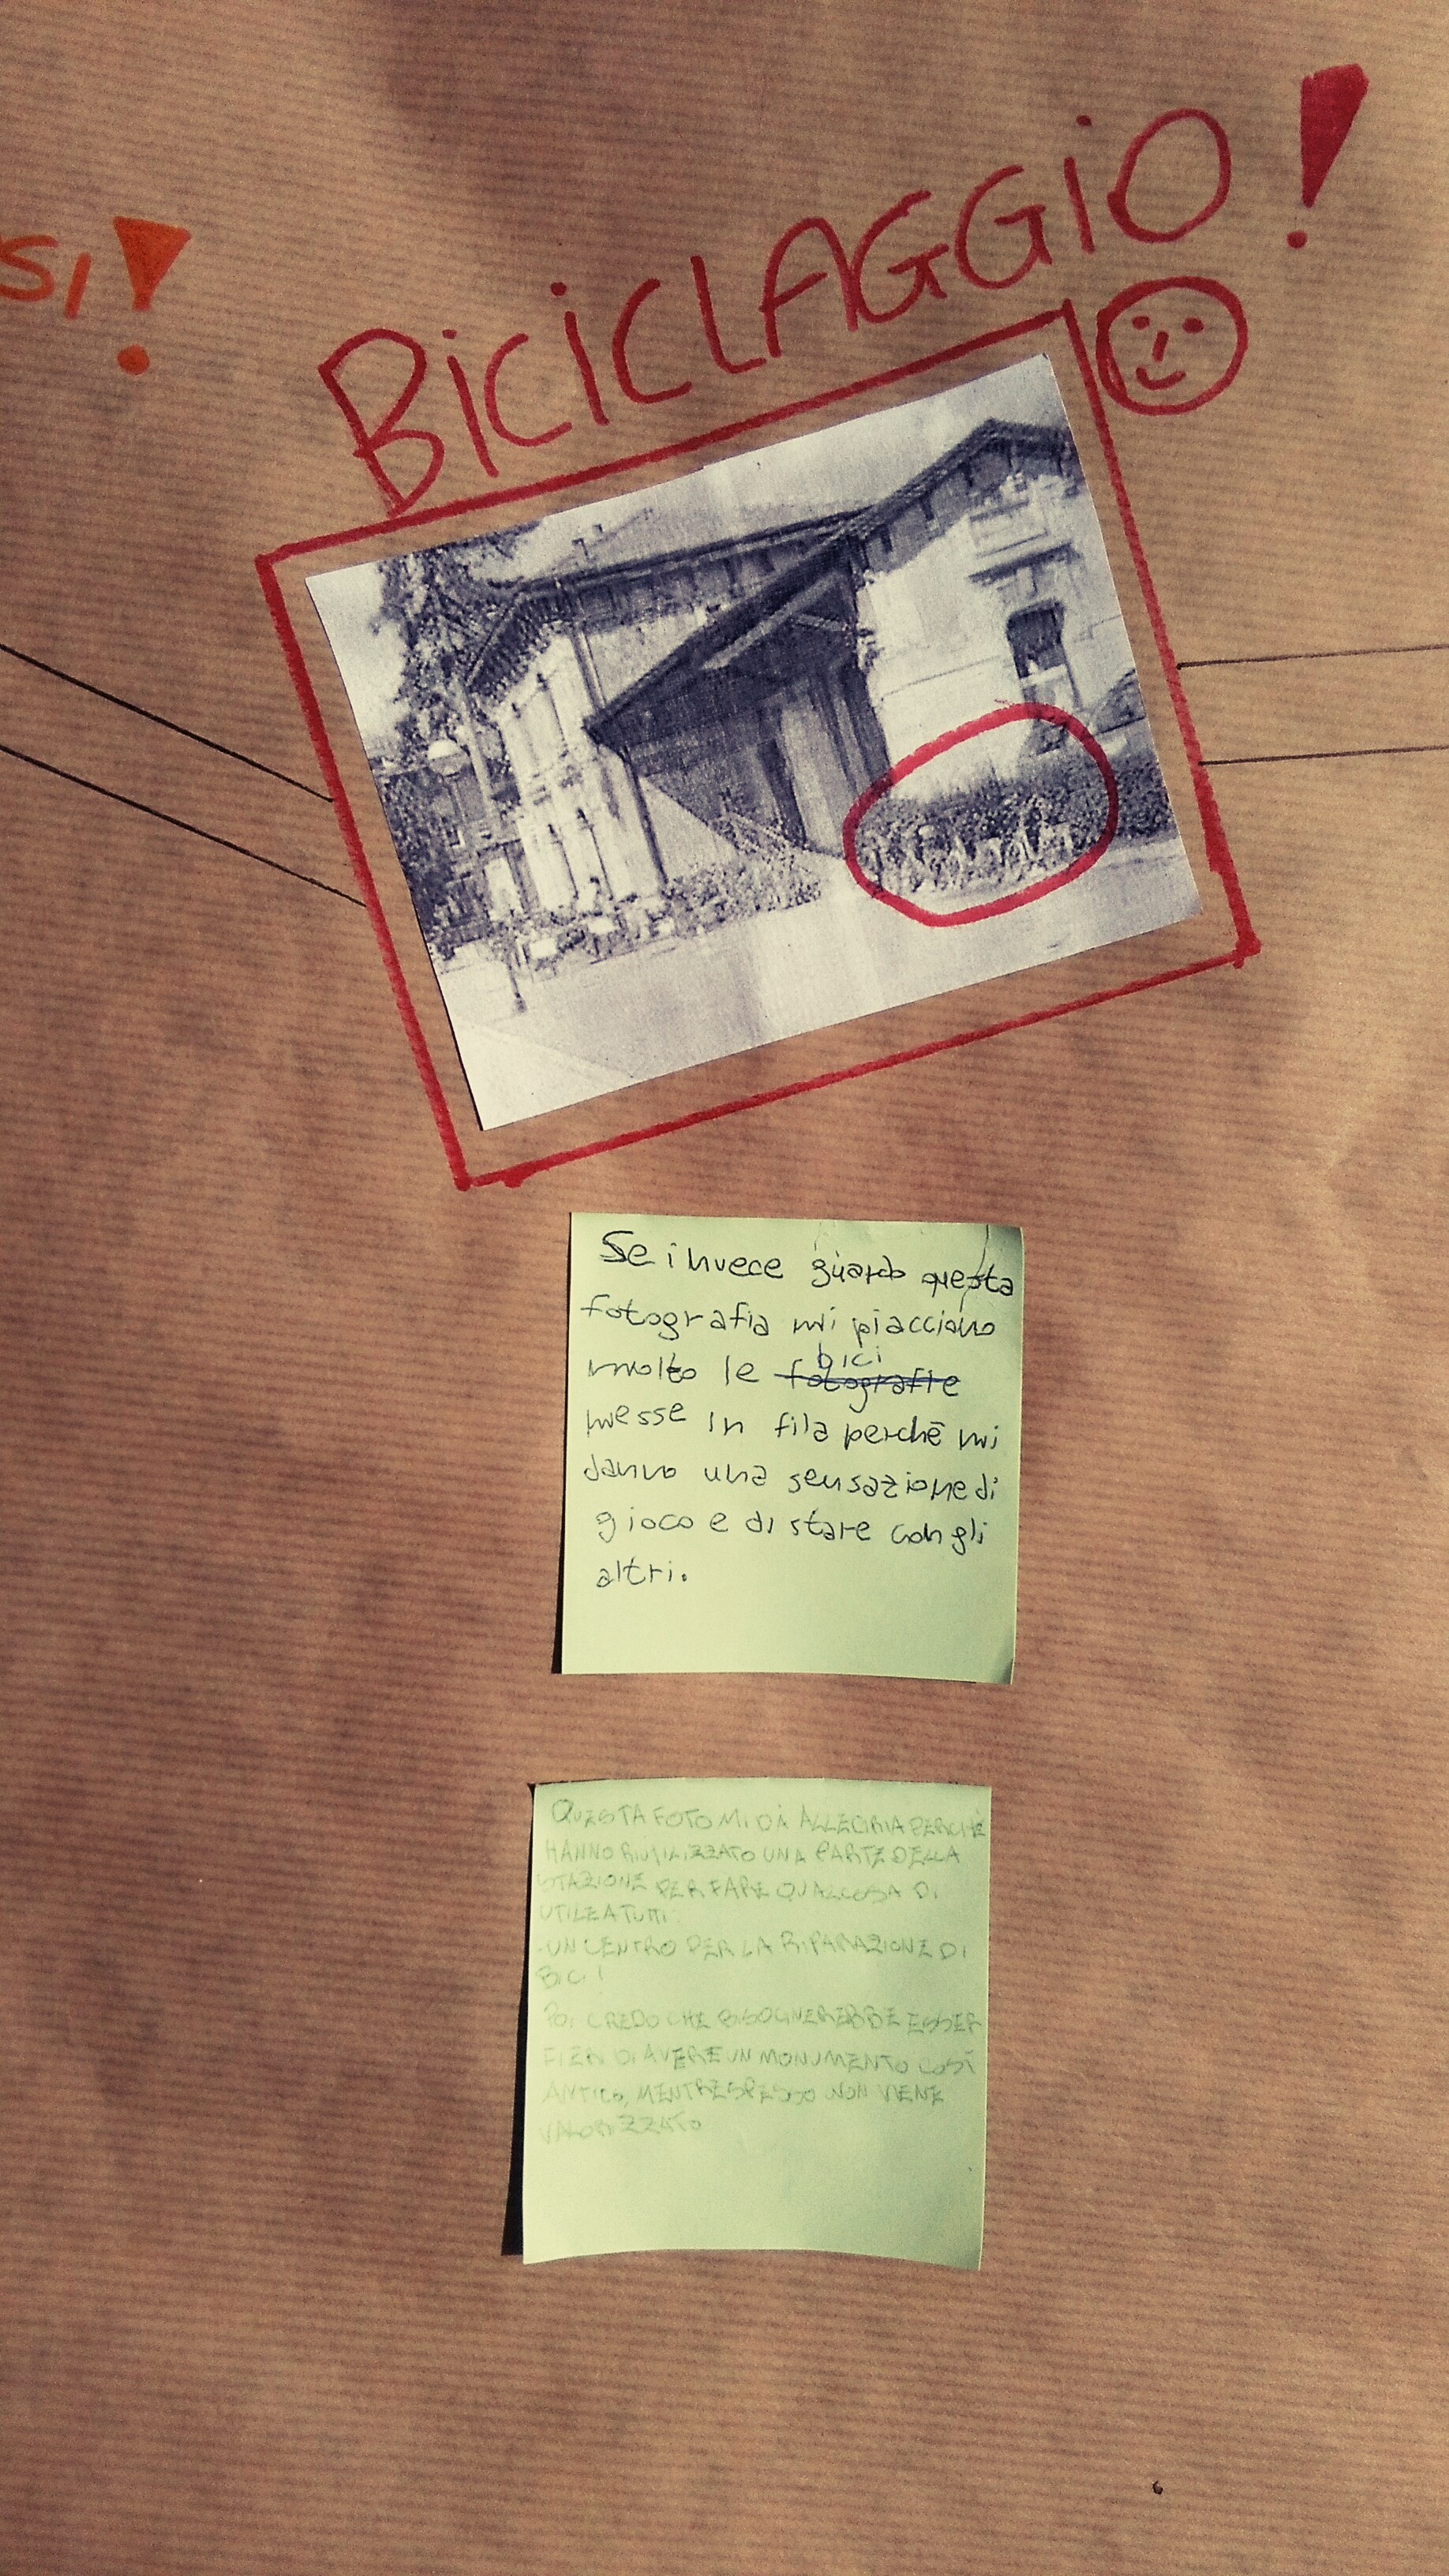 SI!
BICICLAGGIO!
Se invece guardo questa
fotografia mi piacciono
bici
molto le fotografie
messe in fila perchè mi
danno una sensazione di
gioco e di stare con gli
altri.
QUESTA FOTO MI DÀ ALLEGRIA PERCHÈ
HANNO RIUTILIZZATO UNA PARTE DELLA
STAZIONE PER FARE QUALCOSA DI
UTILE A TUTTI:
UN CENTRO PER LA RIPARAZIONE DI
BICI!
POI CREDO CHE BISOGNEREBBE ESSER
FIERI DI AVERE UN MONUMENTO COSÌ
ANTICO, MENTRE SPESSO NON VIENE
VALORIZZATO